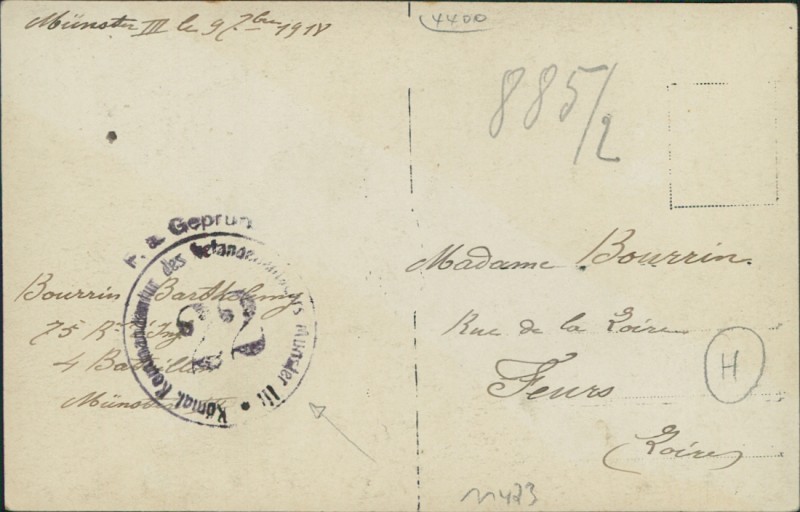 Münster III le 9 7bre 1918
4400
885/2
F. a. Geprüft
Königl. Kommandantur des Gefangenenlagers Münster III.
22
Bourrin Barthelemy
75 R. Inf
4 Bataillon
Münster III
Madame Bourrin.
Rue de la Loire
Feurs
(Loire)
H
11423